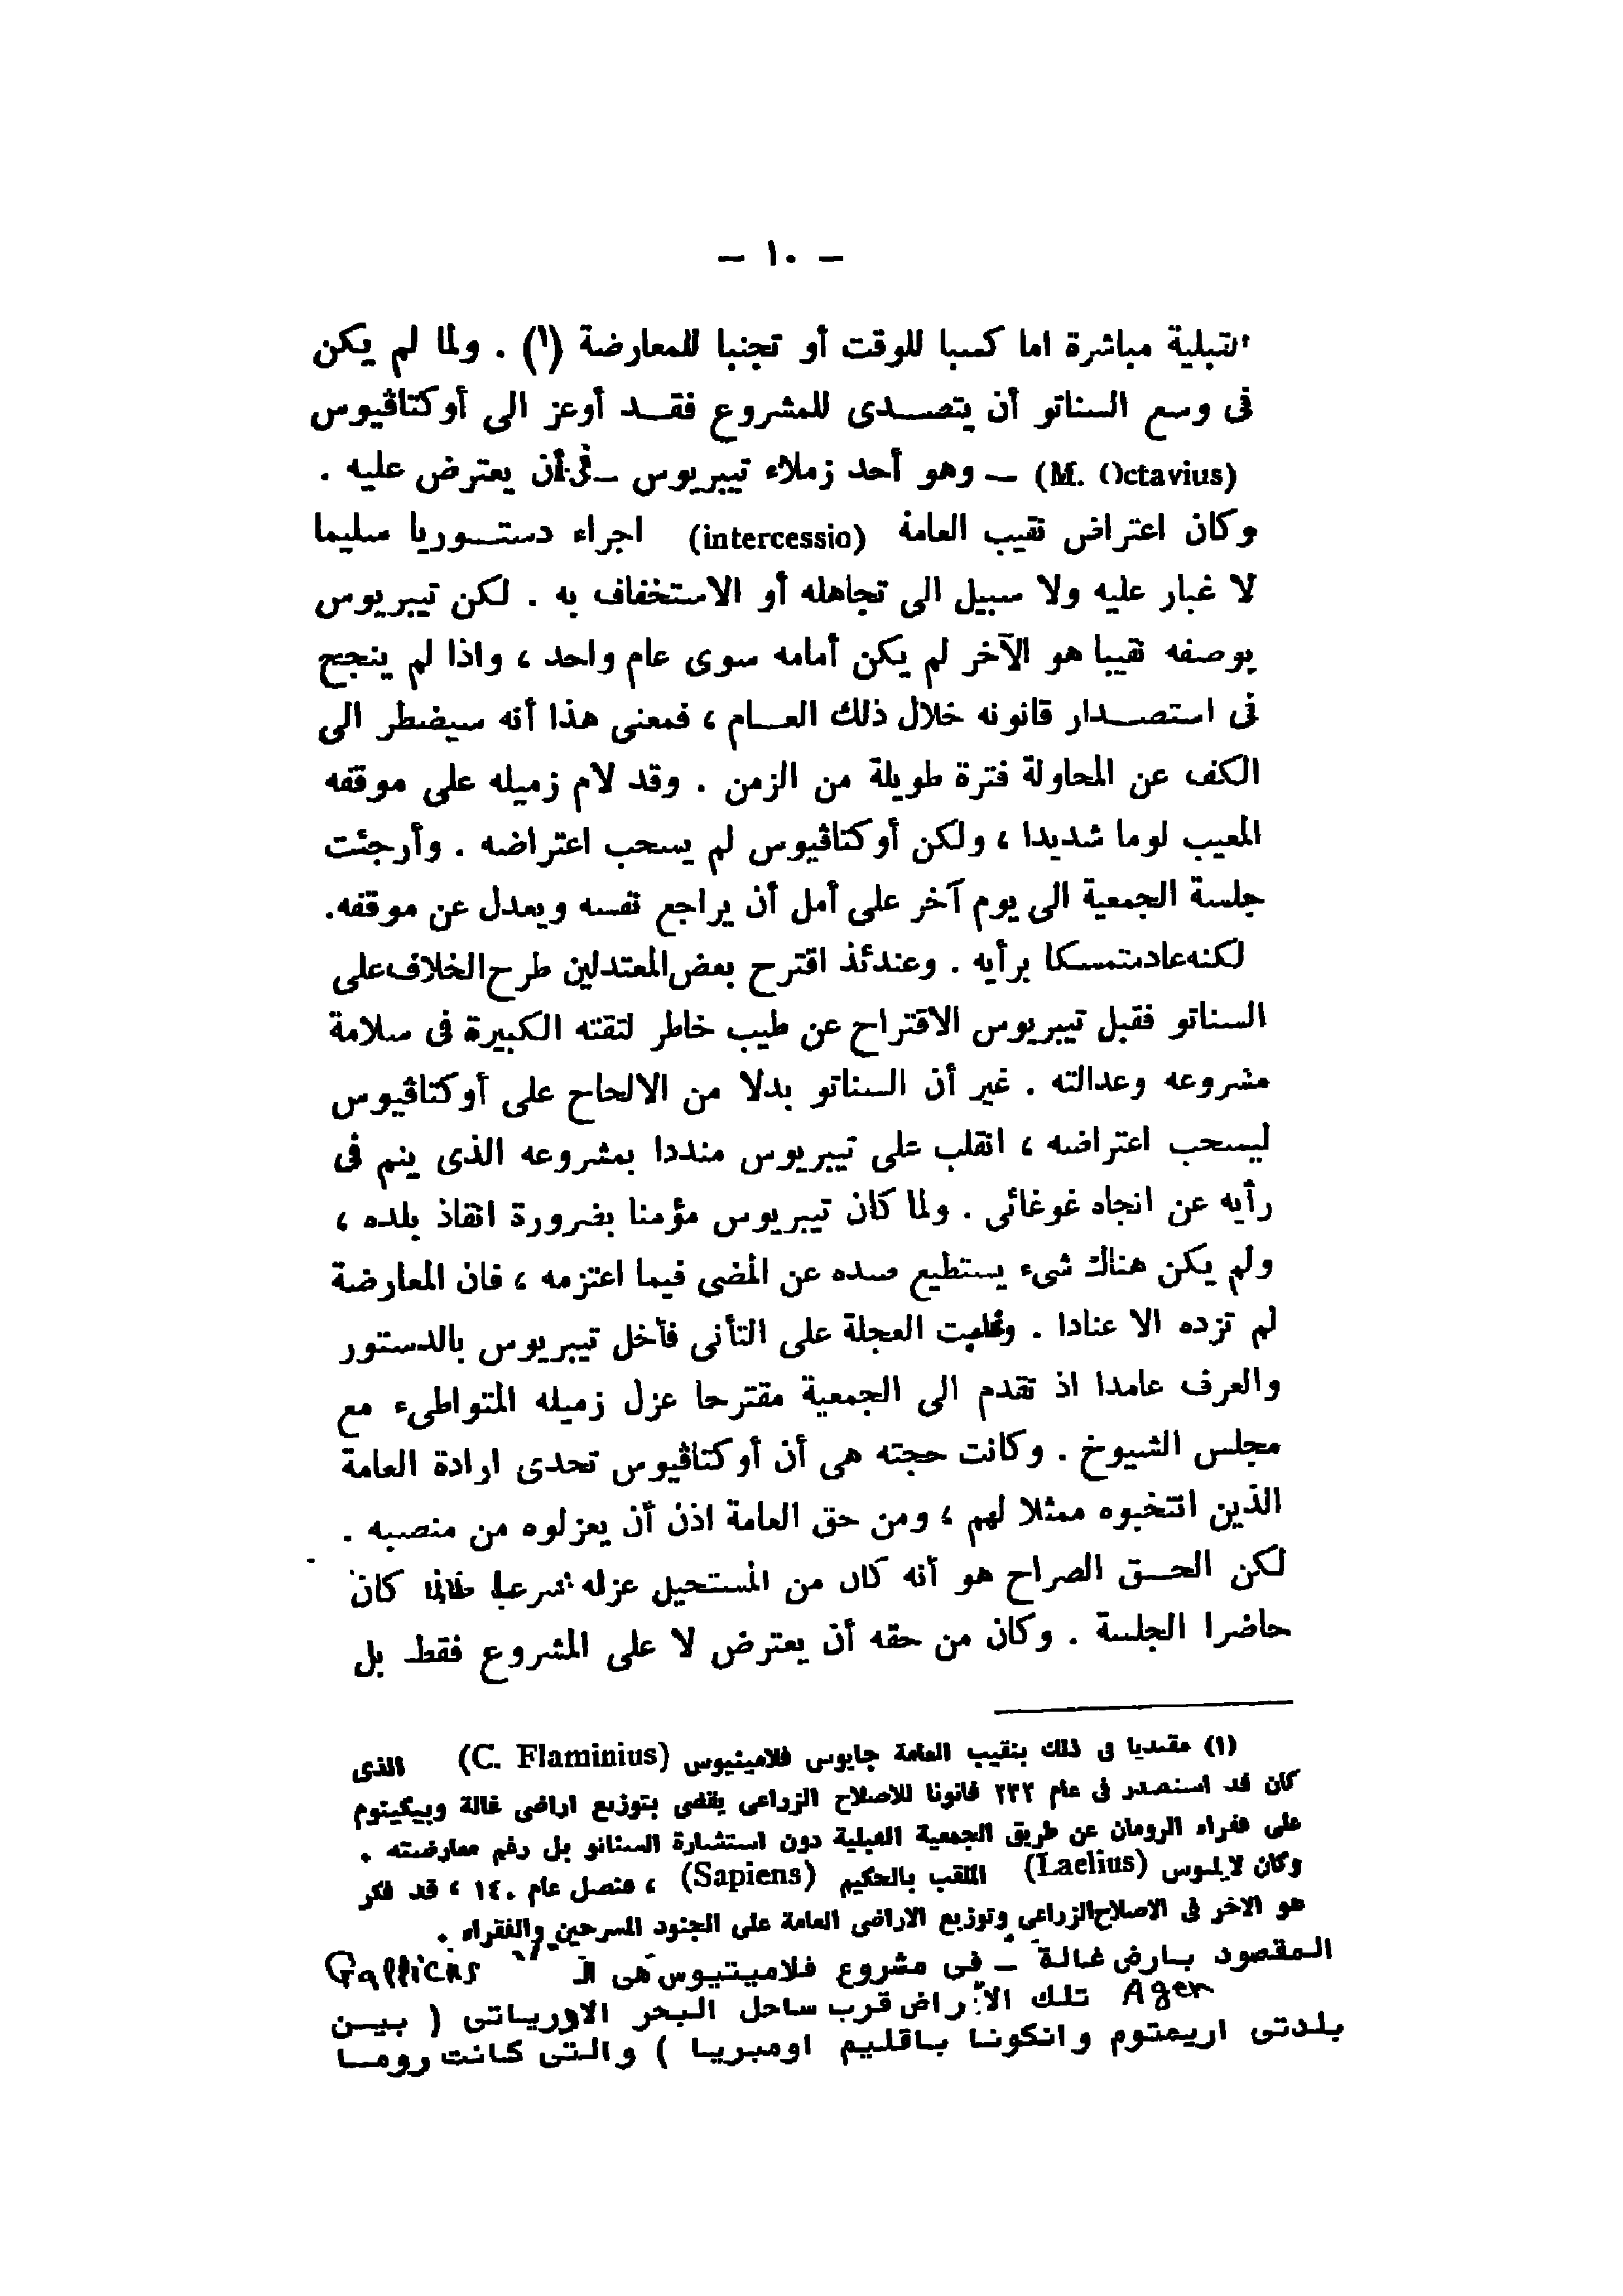 — ١٠ —
القبلية مباشرة اما كسبا للوقت أو تجنبا للمعارضة (١) . ولما لم يكن
فى وسع السناتو أن يتصدى للمشروع فقد أوعز الى أوكتاڤيوس
(M. Octavius) — وهو أحد زملاء تيبريوس — فى أن يعترض عليه .
وكان اعتراض نقيب العامة (intercessio) اجراء دستوريا سليما
لا غبار عليه ولا سبيل الى تجاهله أو الاستخفاف به . لكن تيبريوس
بوصفه نقيبا هو الآخر لم يكن أمامه سوى عام واحد ، واذا لم ينجح
فى استصدار قانونه خلال ذلك العام ، فمعنى هذا أنه سيضطر الى
الكف عن المحاولة فترة طويلة من الزمن . وقد لام زميله على موقفه
المعيب لوما شديدا ، ولكن أوكتاڤيوس لم يسحب اعتراضه . وأرجئت
جلسة الجمعية الى يوم آخر على أمل أن يراجع نفسه ويعدل عن موقفه.
لكنه عاد متمسكا برأيه . وعندئذ اقترح بعض المعتدلين طرح الخلاف على
السناتو فقبل تيبريوس الاقتراح عن طيب خاطر لثقته الكبيرة فى سلامة
مشروعه وعدالته . غير أن السناتو بدلا من الالحاح على أوكتاڤيوس
ليسحب اعتراضه ، انقلب على تيبريوس منددا بمشروعه الذى ينم فى
رأيه عن اتجاه غوغائى . ولما كان تيبريوس مؤمنا بضرورة انقاذ بلده ،
ولم يكن هناك شىء يستطيع صده عن المضى فيما اعتزمه ، فان المعارضة
لم تزده الا عنادا . وغلبت العجلة على التأنى فأخل تيبريوس بالدستور
والعرف عامدا اذ تقدم الى الجمعية مقترحا عزل زميله المتواطىء مع
مجلس الشيوخ . وكانت حجته هى أن أوكتاڤيوس تحدى ارادة العامة
الذين انتخبوه ممثلا لهم ، ومن حق العامة اذن أن يعزلوه من منصبه .
لكن الحق الصراح هو أنه كان من المستحيل عزله شرعا طالما كان
حاضرا الجلسة . وكان من حقه أن يعترض لا على المشروع فقط بل
(١) مقتديا فى ذلك بنقيب العامة جايوس فلامينيوس (C. Flaminius) الذى
كان قد استصدر فى عام ٢٣٢ قانونا للاصلاح الزراعى يقضى بتوزيع اراضى غالة وبيكينوم
على فقراء الرومان عن طريق الجمعية القبلية دون استشارة السناتو بل رغم معارضته .
وكان لايليوس (Laelius) الملقب بالحكيم (Sapiens) ، قنصل عام ١٤٠ ، قد فكر
هو الاخر فى الاصلاح الزراعى وتوزيع الاراضى العامة على الجنود المسرحين والفقراء .
المقصود بارض غالة – فى مشروع فلاميتيوس هى الـ Gallicus
Ager تلك الأراض قرب ساحل البحر الادرياتى ( بين
بلدتى اريمتوم وانكونا باقليم اومبريا ) والتى كانت روما